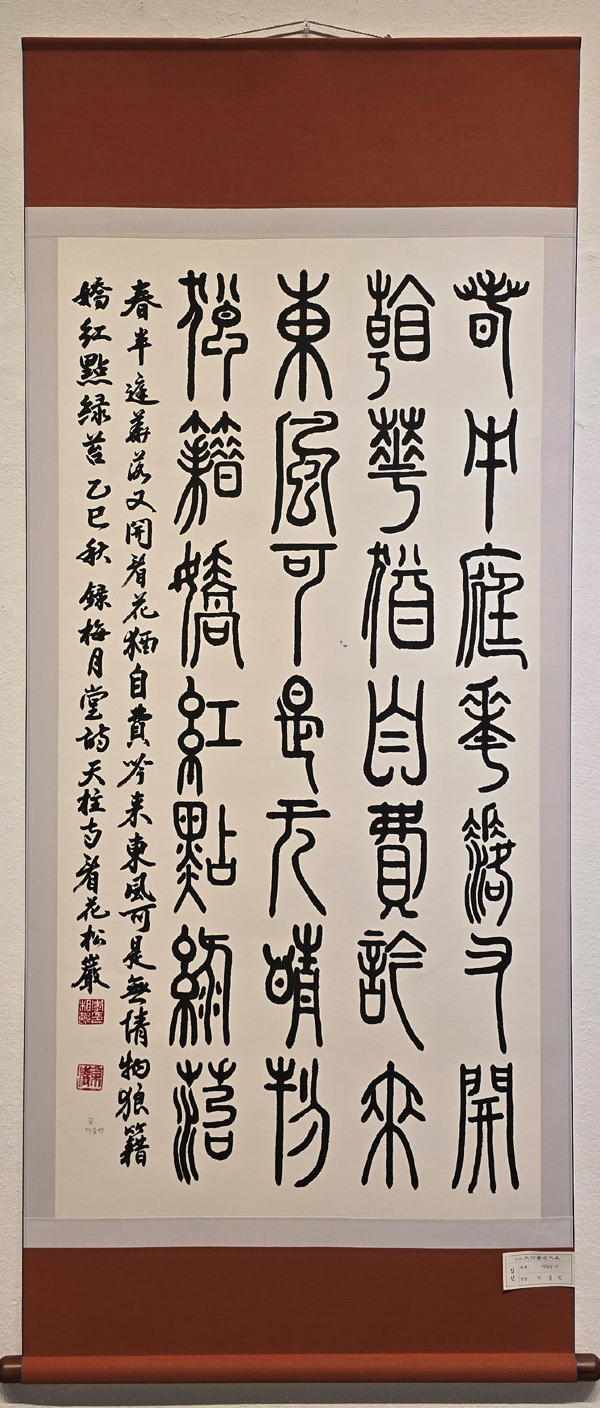 春半庭華落又開
看華猶自費訡來
東風可是无晴物
狼籍嬌紅點綠苔
春半庭華落又開看花猶自費吟来東風可是無情物狼籍
嬌紅點緑苔 乙巳秋 錄梅月堂詩天柱寺看花松巖
입선